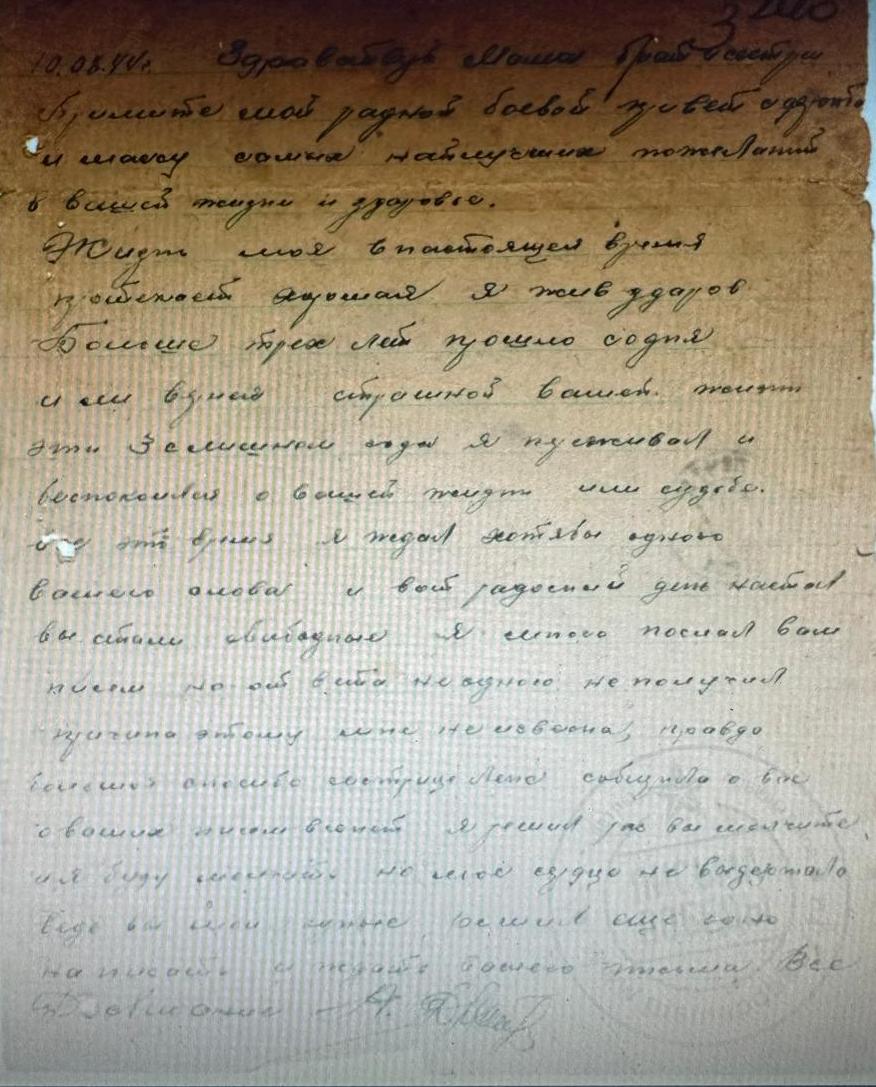 10.08.44г. Здравствуй Мама брат и сестри
Примите мой радной боевой привет
и массу самых наилучших пожеланий
в вашей жизни и здоровье.
Жизнь моя в настоящея время
протекает хорошая я жив здаров
Больше трех лет прошло содня
страшной вашей жизни
эти 3 слишном года я и
беспокоился о вашей жизни или судьбе.
это время я ждал хотябы одного
вашего слова и вот радосный день настал
вы стали свободные я много послал вам
писем но от вета не одного не получил
причина этому мне не исвесна, правда
спасибо сестрице Лене собщила о вас
о ваших писем я решил раз вы молчите
и я буду молчать но моё сердце не выдержало
вы мои решил еще одно
написать и ждать вашего письма. Все
До свидание